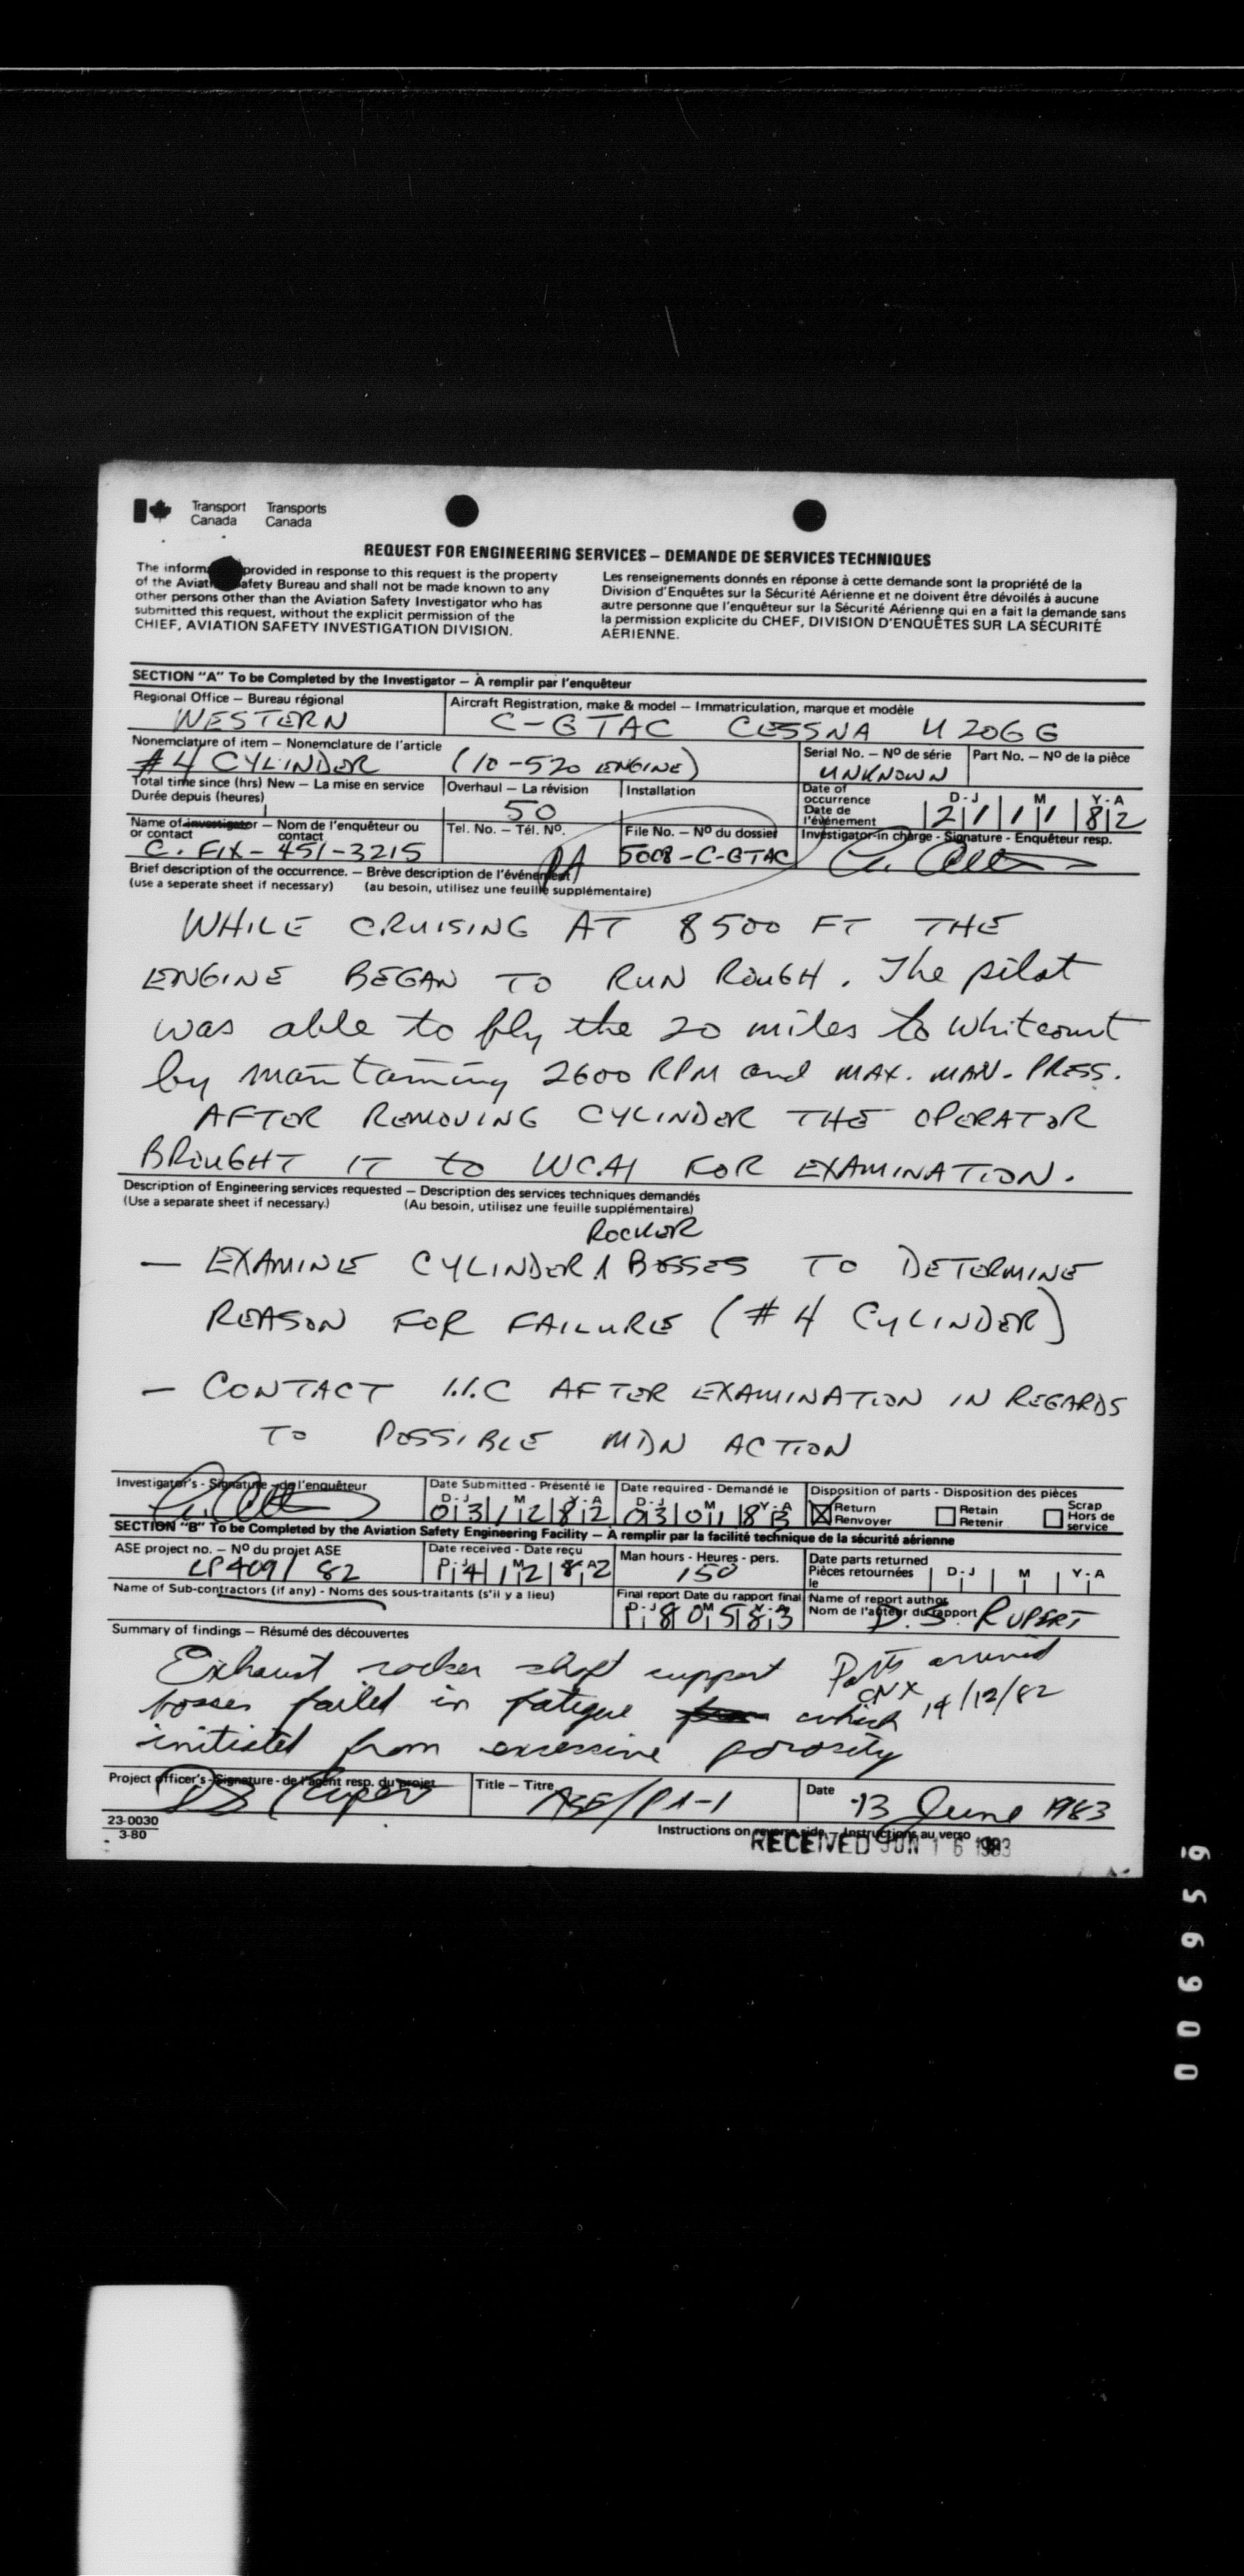 Transport Canada Transports Canada
REQUEST FOR ENGINEERING SERVICES – DEMANDE DE SERVICES TECHNIQUES
The inform provided in response to this request is the property
of the Aviat afety Bureau and shall not be made known to any
other persons other than the Aviation Safety Investigator who has
submitted this request, without the explicit permission of the
CHIEF, AVIATION SAFETY INVESTIGATION DIVISION.
Les renseignements donnés en réponse à cette demande sont la propriété de la
Division d'Enquêtes sur la Sécurité Aérienne et ne doivent être dévoilés à aucune
autre personne que l'enquêteur sur la Sécurité Aérienne qui en a fait la demande sans
la permission explicite du CHEF, DIVISION D'ENQUÊTES SUR LA SÉCURITÉ
AÉRIENNE.
SECTION "A" To be Completed by the Investigator – À remplir par l'enquêteur
Regional Office – Bureau régional
WESTERN
Aircraft Registration, make & model – Immatriculation, marque et modèle
C-GTAC CESSNA U206G
Nomenclature of item – Nomenclature de l'article
#4 CYLINDER (IO-520 ENGINE)
Serial No. – Nº de série
UNKNOWN
Part No. – Nº de la pièce
Total time since (hrs) New – La mise en service
Durée depuis (heures)
Overhaul – La révision
50
Installation
Date of occurrence
Date de l'événement
D-J M Y-A
21 11 82
Name of investigator – Nom de l'enquêteur ou
or contact contact
C. FIX - 451-3215
Tel. No. – Tél. Nº.
File No. – Nº du dossier
5008-C-GTAC
Investigator-in charge - Signature - Enquêteur resp.
Brief description of the occurrence. – Brève description de l'événement
(use a seperate sheet if necessary) (au besoin, utilisez une feuille supplémentaire)
WHILE CRUISING AT 8500 FT THE
ENGINE BEGAN TO RUN ROUGH. The pilot
was able to fly the 20 miles to Whitcourt
by maintaining 2600 RPM and MAX. MAN. PRESS.
AFTER REMOVING CYLINDER THE OPERATOR
BROUGHT IT to WCAI FOR EXAMINATION.
Description of Engineering services requested – Description des services techniques demandés
(Use a separate sheet if necessary.) (Au besoin, utilisez une feuille supplémentaire)
ROCKER
– EXAMINE CYLINDER BOSSES TO DETERMINE
REASON FOR FAILURE (#4 CYLINDER)
– CONTACT I.I.C AFTER EXAMINATION IN REGARDS
TO POSSIBLE MDN ACTION
Investigator's - Signature - de l'enquêteur
Date Submitted - Présenté le
D-J M Y-A
03 12 82
Date required - Demandé le
D-J M Y-A
03 01 83
Disposition of parts - Disposition des pièces
Return Renvoyer
Retain Retenir
Scrap Hors de service
SECTION "B" To be Completed by the Aviation Safety Engineering Facility – À remplir par la facilité technique de la sécurité aérienne
ASE project no. – Nº du projet ASE
LP409/82
Date received - Date reçu
D-J M Y-A
14 12 82
Man hours - Heures - pers.
150
Date parts returned
Pièces retournées le
D-J M Y-A
Name of Sub-contractors (if any) - Noms des sous-traitants (s'il y a lieu)
Final report Date du rapport final
D-J M Y-A
18 05 83
Name of report author
Nom de l'auteur du rapport
D.S. RUPERT
Summary of findings – Résumé des découvertes
Exhaust rocker shaft support
bosses failed in fatigue which
initiated from excessive porosity
Parts arrived
CNX 14/12/82
Project officer's - Signature - de l'agent resp. du projet
DS Rupert
Title – Titre
Date
13 June 1983
23-0030
3-80
Instructions on reverse side – Instructions au verso
RECEIVED JUN 16 1983
006959